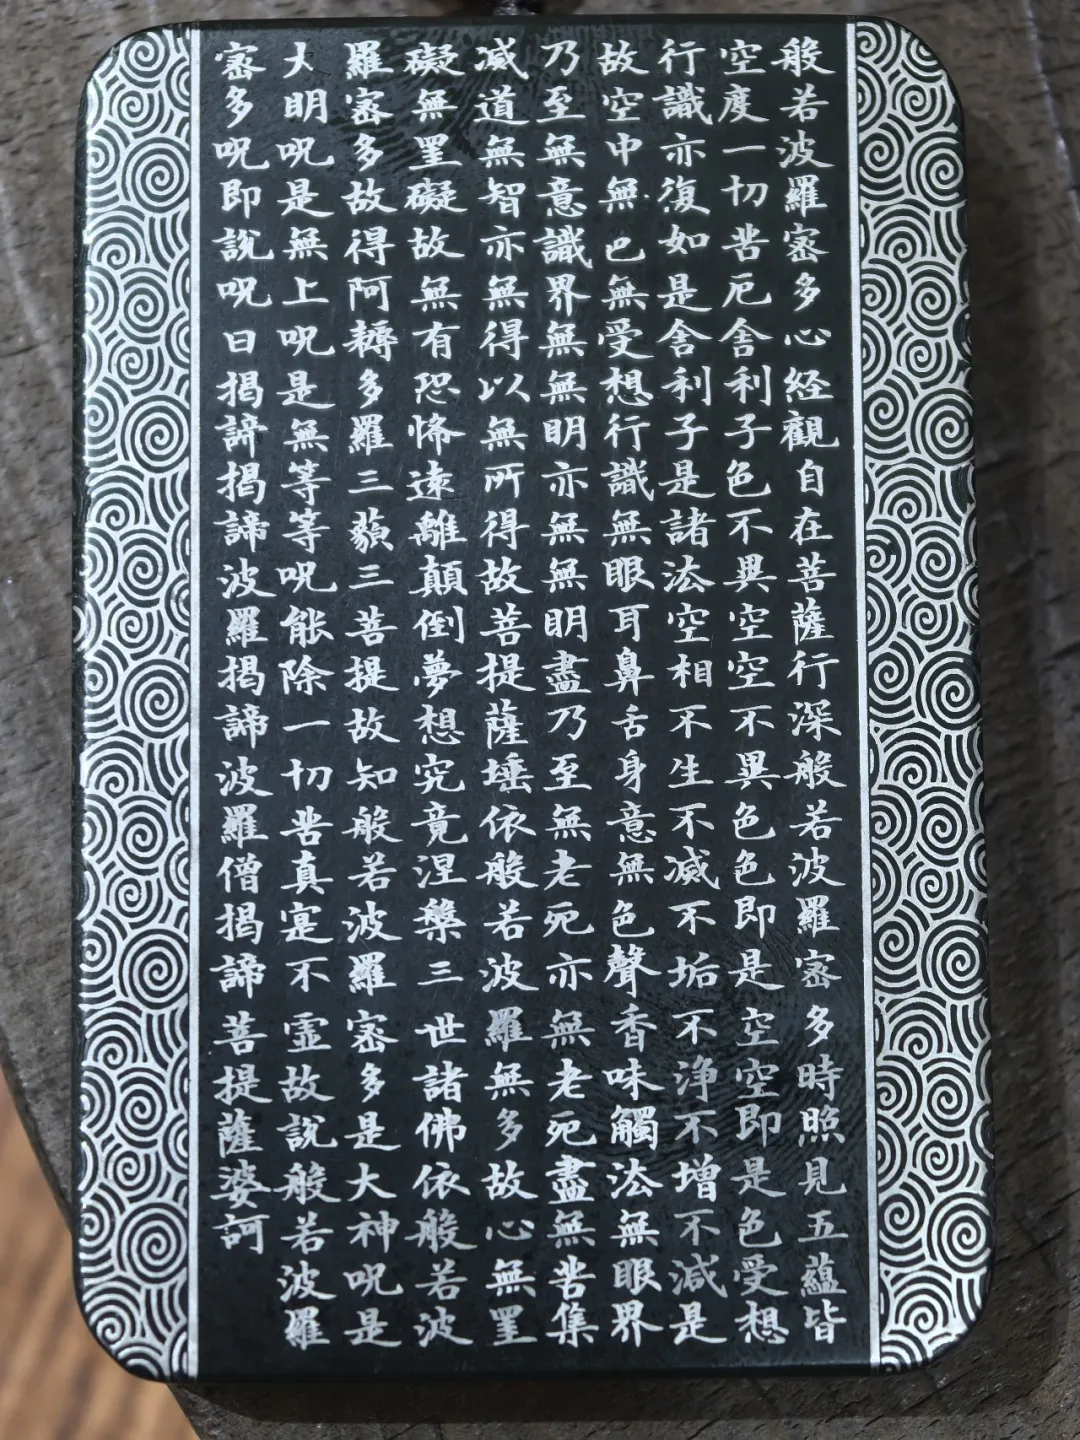 般若波羅密多心経觀自在菩薩行深般若波羅密多時照見五蘊皆
空度一切苦厄舍利子色不異空空不異色色即是空空即是色受想
行識亦復如是舍利子是諸法空相不生不滅不垢不淨不增不減是
故空中無色無受想行識無眼耳鼻舌身意無色聲香味觸法無眼界
乃至無意識界無無明亦無無明盡乃至無老死亦無老死盡無苦集
滅道無智亦無得以無所得故菩提薩埵依般若波羅無多故心無罣
礙無罣礙故無有恐怖遠離顛倒夢想究竟涅槃三世諸佛依般若波
羅密多故得阿耨多羅三藐三菩提故知般若波羅密多是大神呪是
大明呪是無上呪是無等等呪能除一切苦真寔不虛故說般若波羅
密多呪即說呪曰揭諦揭諦波羅揭諦波羅僧揭諦菩提薩婆訶